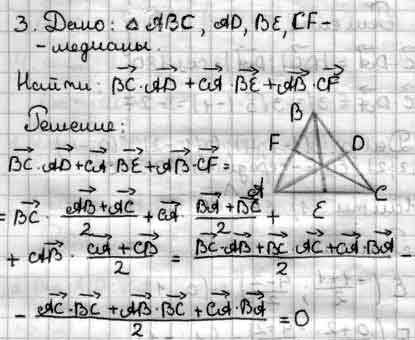 3. Дано: △ ABC, AD, BE, CF -
- медианы.
Найти: BC·AD + CA·BE + AB·CF
Решение:
BC·AD + CA·BE + AB·CF =
= BC · (AB + AC)/2 + CA · (BA + BC)/2 +
+ AB · (CA + CB)/2 = (BC·AB + BC·AC + CA·BA)/2 -
- (AC·BC + AB·BC + CA·BA)/2 = 0
B
F
D
A
E
C